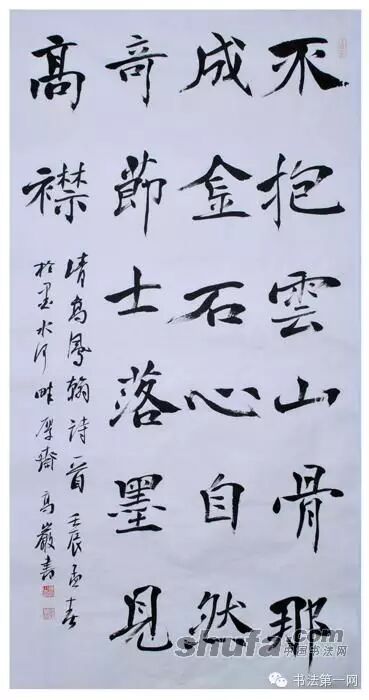 不抱雲山骨那
成金石心自然
奇節士落墨見
髙襟
清高鳳翰詩一首 壬辰孟春
於墨水河畔齋 高嚴書
shufa.com
中国书法网
书法第一网